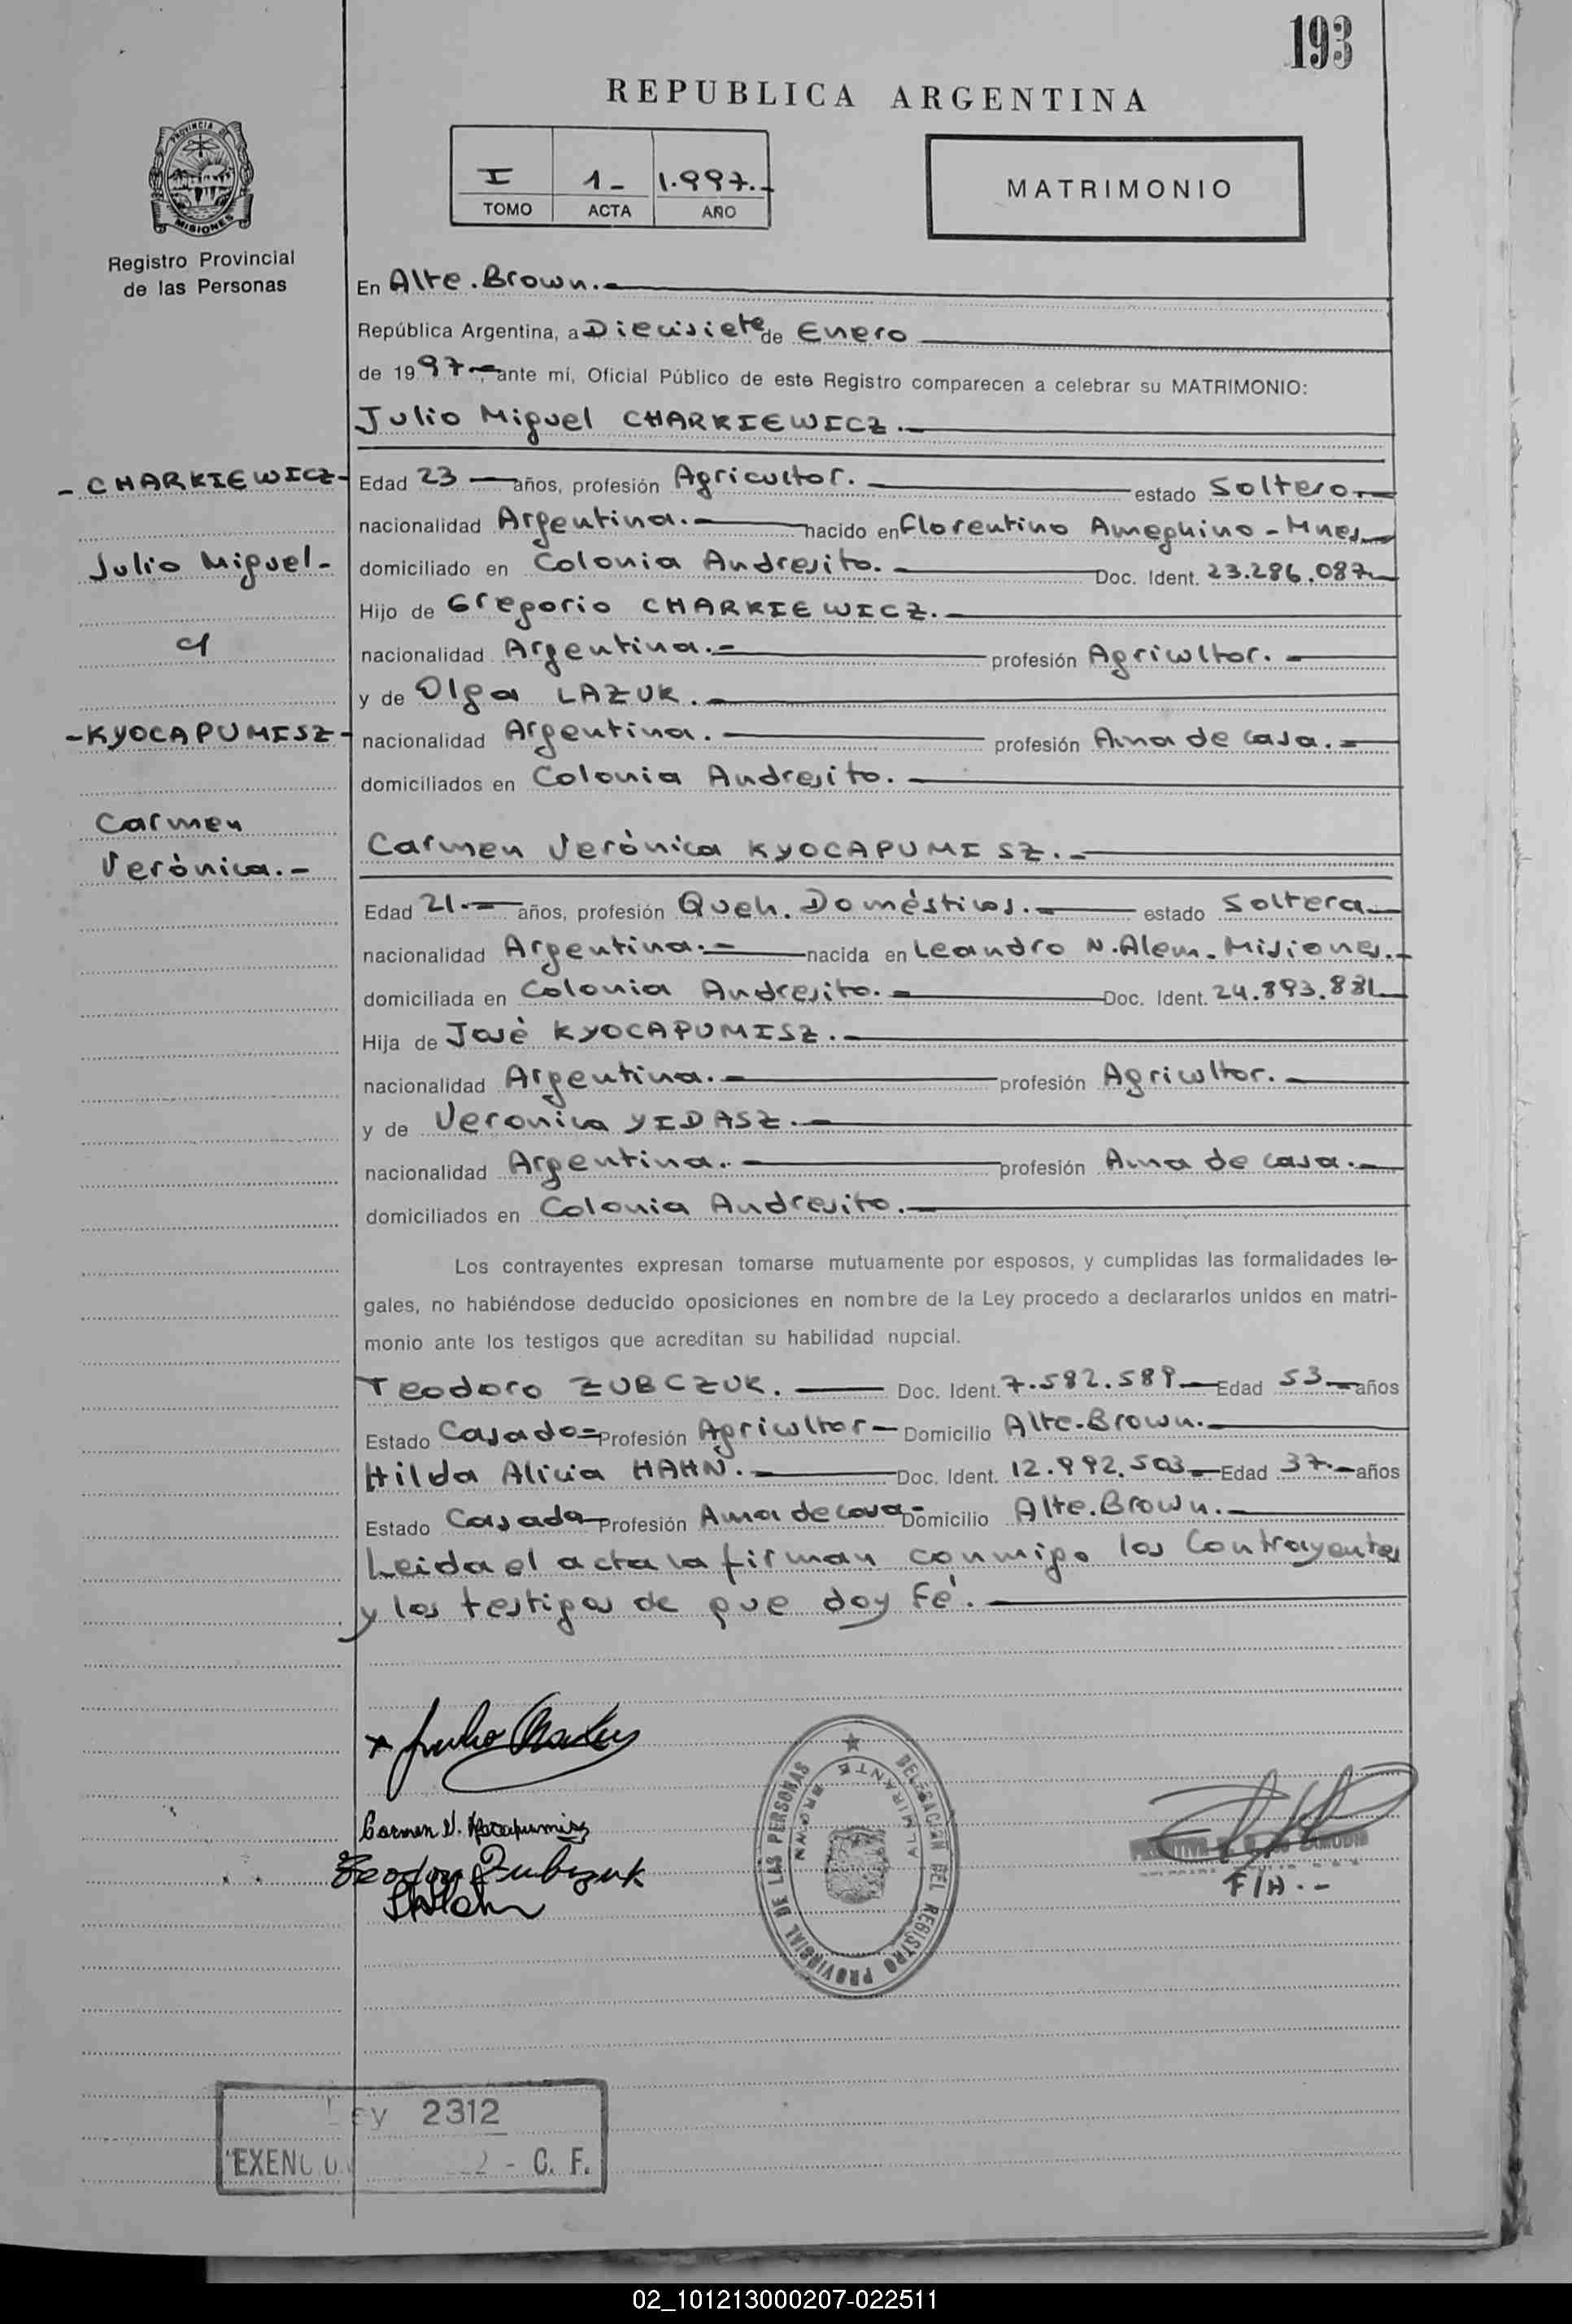 193
REPUBLICA ARGENTINA
PROVINCIA DE
MISIONES
Registro Provincial
de las Personas
I 1- 1.997.-
TOMO ACTA AÑO
MATRIMONIO
En Alte. Brown.-
República Argentina, a Diecisiete de Enero
de 1997.-, ante mí, Oficial Público de este Registro comparecen a celebrar su MATRIMONIO:
Julio Miguel CHARKIEWICZ.-
- CHARKIEWICZ-
Julio Miguel-
c/
-KYOCAPUMISZ-
Carmen
Verònica.-
Edad 23 años, profesión Agricultor. estado Soltero.-
nacionalidad Argentina.- nacido en Florentino Ameghino - Mnes.-
domiciliado en Colonia Andresito.- Doc. Ident. 23.286.087.-
Hijo de Gregorio CHARKIEWICZ.-
nacionalidad Argentina.- profesión Agricultor.-
y de Olga LAZUK.-
nacionalidad Argentina.- profesión Ama de casa.-
domiciliados en Colonia Andresito.-
Carmen Verònica KYOCAPUMISZ.-
Edad 21.- años, profesión Queh. Domésticos.- estado Soltera
nacionalidad Argentina.- nacida en Leandro N. Alem - Misiones.-
domiciliada en Colonia Andresito.- Doc. Ident. 24.893.831
Hija de Josè KYOCAPUMISZ.-
nacionalidad Argentina.- profesión Agricultor.-
y de Veronica YIDASZ.-
nacionalidad Argentina.- profesión Ama de casa.-
domiciliados en Colonia Andresito.-
Los contrayentes expresan tomarse mutuamente por esposos, y cumplidas las formalidades le-
gales, no habiéndose deducido oposiciones en nombre de la Ley procedo a declararlos unidos en matri-
monio ante los testigos que acreditan su habilidad nupcial.
Teodoro ZUBCZUK.- Doc. Ident. 7.582.589 Edad 53 años
Estado Casado Profesión Agricultor- Domicilio Alte. Brown.-
Hilda Alicia HAHN.- Doc. Ident. 12.992.503.- Edad 37.- años
Estado Casada Profesión Ama de casa- Domicilio Alte. Brown.-
Leida el acta la firman conmigo los Contrayentes
y los testigos de que doy Fé.-
Julio
Carmen V. Kyocapumisz
Teodoro Zubczuk
DELEGACION DEL REGISTRO PROVINCIAL DE LAS PERSONAS
ALMIRANTE BROWN
F/A.-
Ley 2312
C. F.
02_101213000207-022511